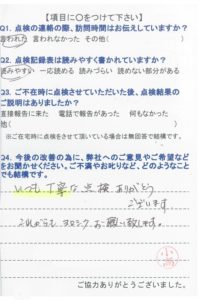 【項目に○をつけて下さい】
Q1. 点検の連絡の際、訪問時間はお伝えしていますか？
言われた 言われなかった その他( )
Q2. 点検記録表は読みやすく書かれていますか？
読みやすい 一応読める 読みづらい 読めない部分がある
Q3. ご不在時に点検させていただいた後、点検結果の
ご説明はありましたか？
直接報告に来た 電話で報告があった 何もなかった
他( )
※ご在宅時に点検をさせて頂いている場合は無回答で結構です。
Q4. 今後の改善の為に、弊社へのご意見やご希望など
をお聞かせください。ご不満やお叱りなど、どのようなこと
でも結構です。
いつも丁寧な点検ありがとう
ございます
これからも ヨロシク お願い致します。
ご協力ありがとうございました。